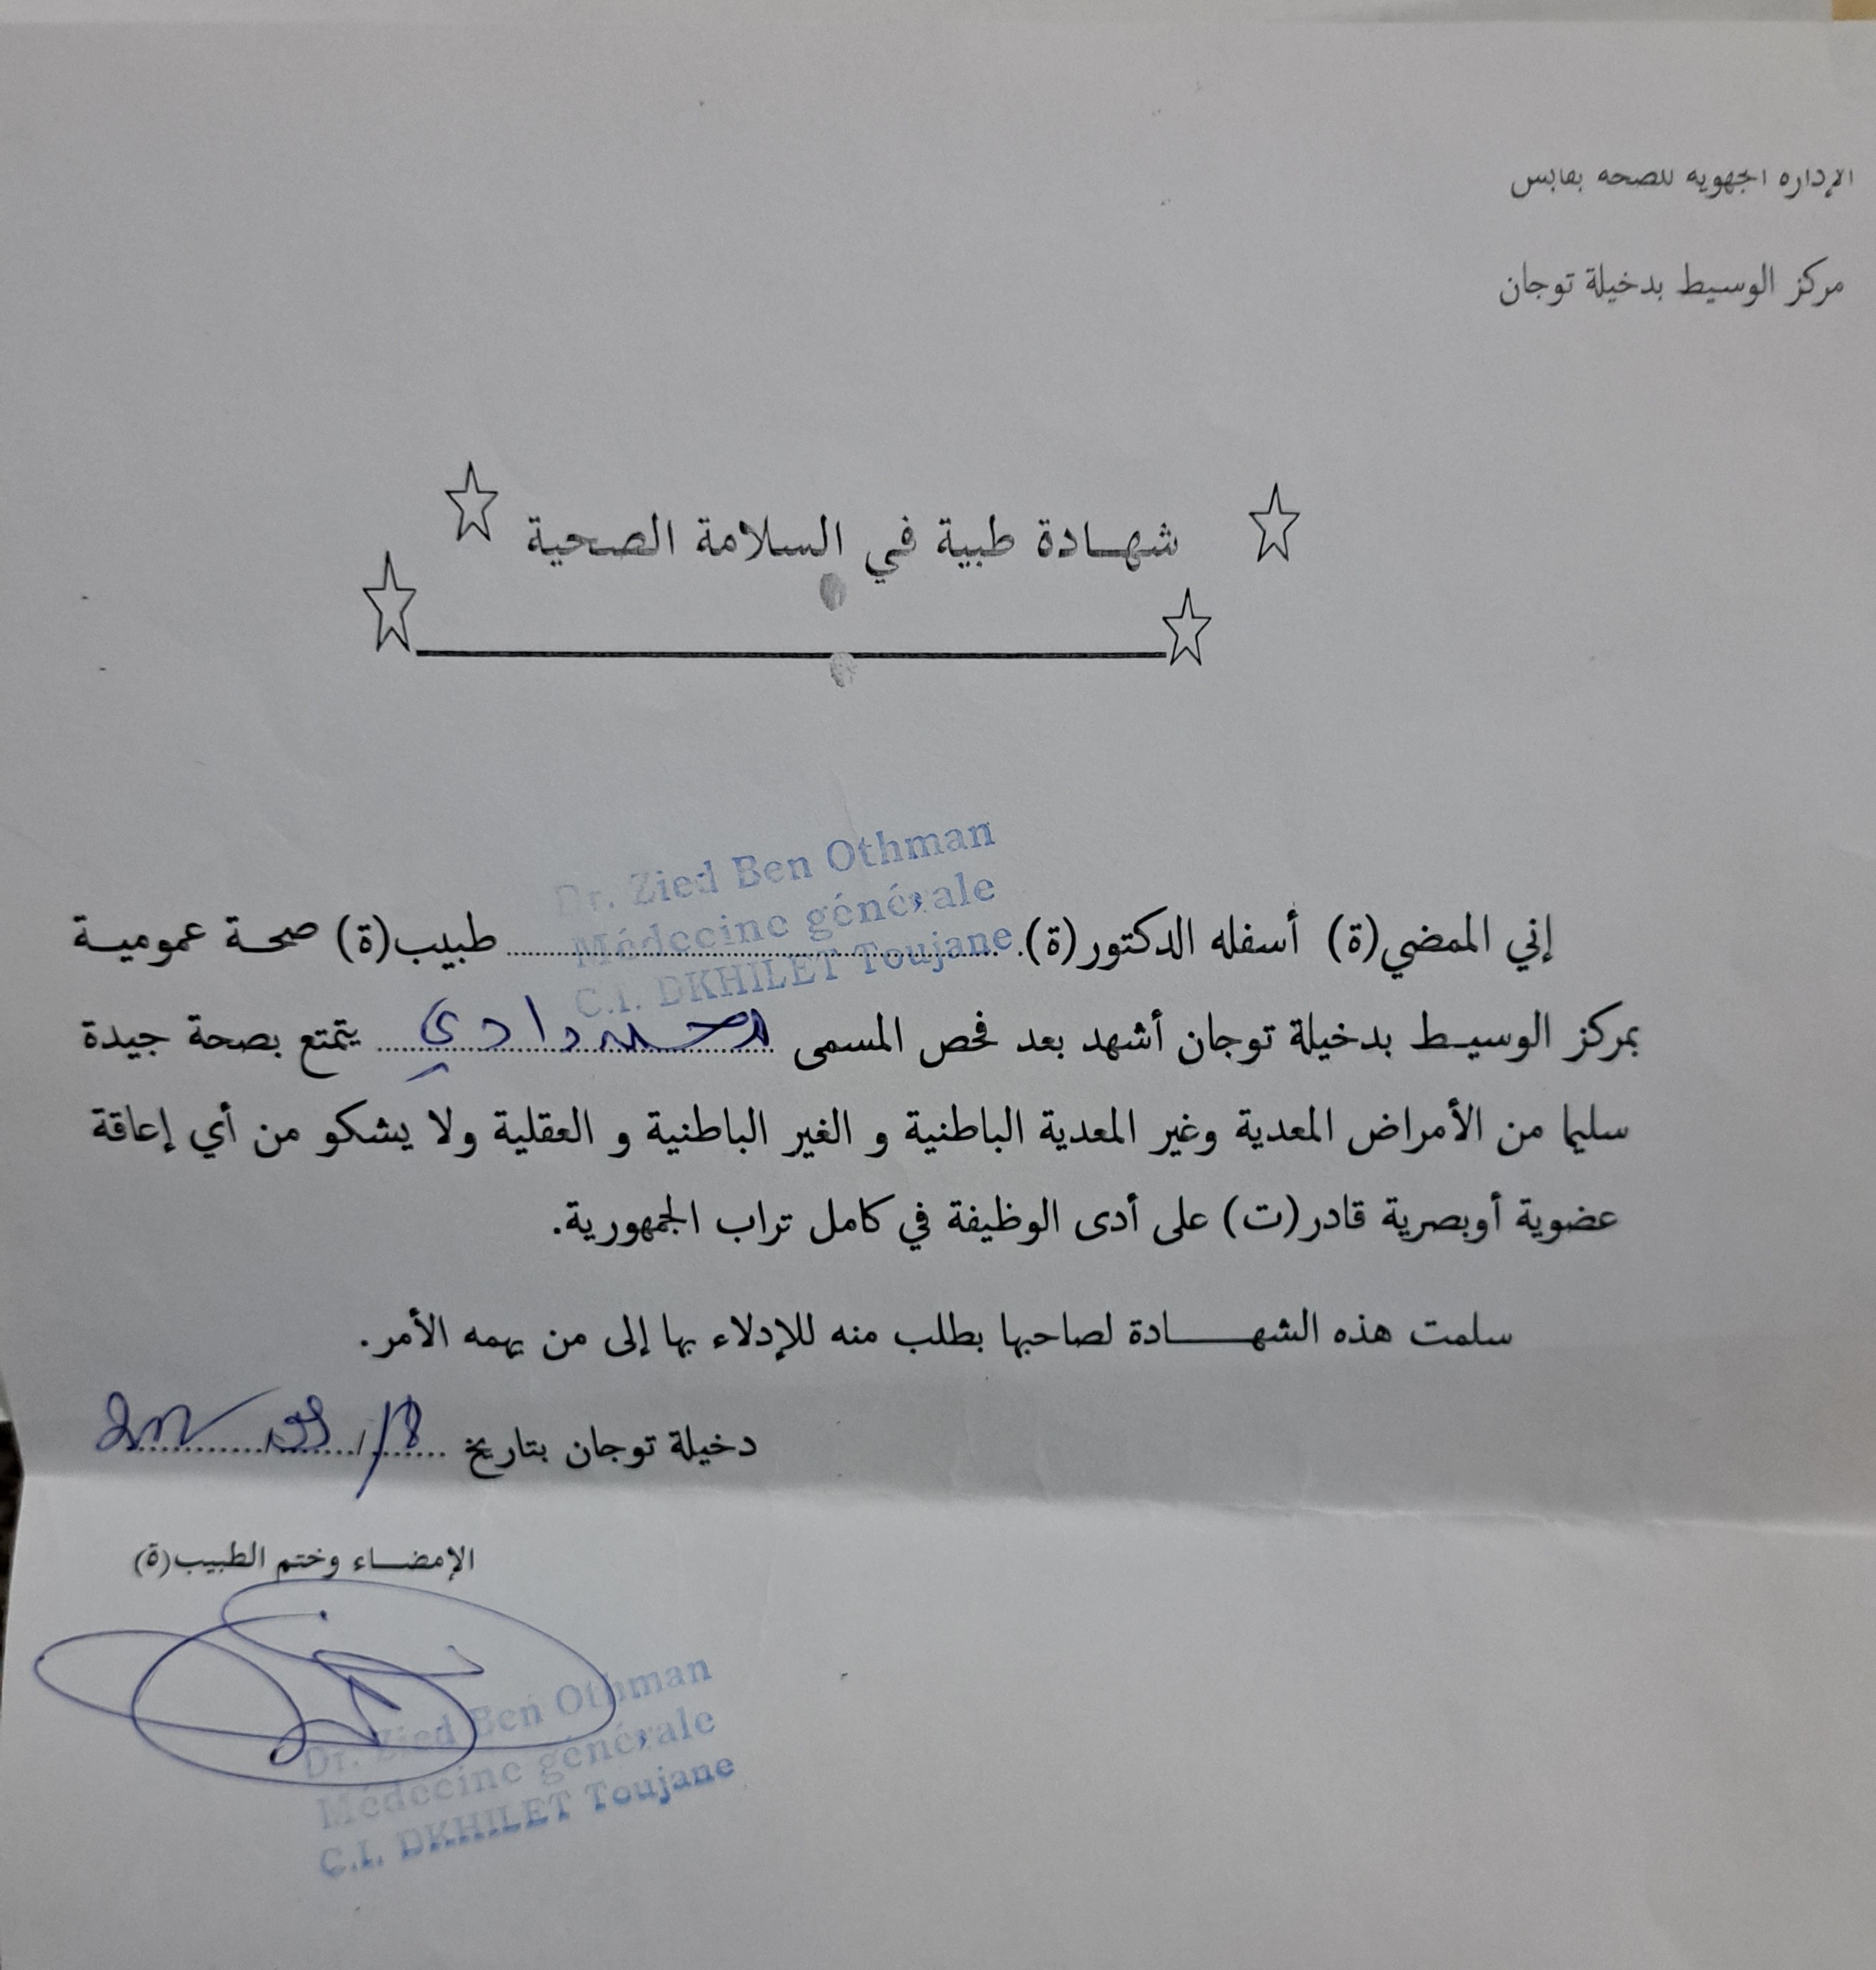 الإدارة الجهوية للصحة بقابس
مركز الوسيط بدخيلة توجان
شهـــادة طبية في السلامة الصحية
Dr. Zied Ben Othman
Médecine générale
C.I. DKHILET Toujane
إني الممضي(ة) أسفله الدكتور(ة)........................طبيب(ة) صحة عمومية
بمركز الوسيط بدخيلة توجان أشهد بعد فحص المسمى ........................ يتمتع بصحة جيدة
سليما من الأمراض المعدية وغير المعدية الباطنية و الغير الباطنية و العقلية ولا يشكو من أي إعاقة
عضوية أوبصرية قادر(ت) على أدى الوظيفة في كامل تراب الجمهورية.
سلمت هذه الشهــــادة لصاحبها بطلب منه للإدلاء بها إلى من يهمه الأمر.
دخيلة توجان بتاريخ
الإمضـــاء وختم الطبيب(ة)
Dr. Zied Ben Othman
Médecine générale
C.I. DKHILET Toujane